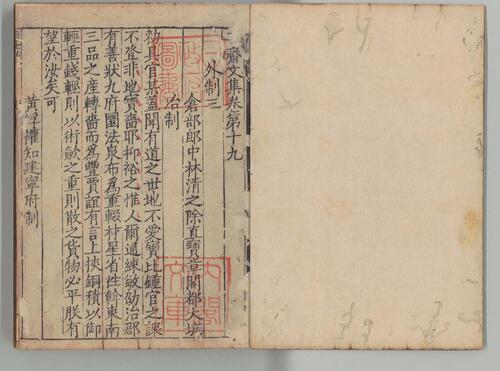 齋文集卷第十九
外制三
倉部郎中林清之除直寶章閣都大坑
冶制
勑具官某蓋聞有道之世地不愛寶比鍾官之課
不登非地寶嗇耶抑裕之惟人爾通練敏劭治郡
有善狀九府圜法泉布為重輟材星省往斡東南
三品之產轉嗇而為豐賈誼有言上挾銅積以御
輕重錢輕則以術歛之重則散之貨物必平朕有
望於汝矣可
黃權知建寧府制
圖書
內閣
文庫